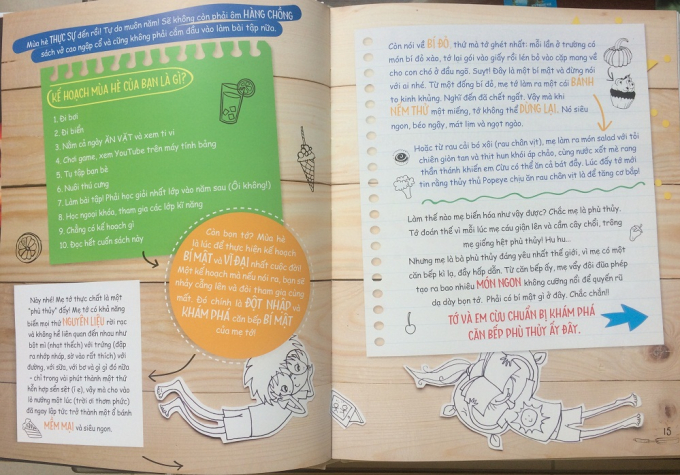 Mùa hè THỰC SỰ đến rồi! Tự do muôn năm! Sẽ không còn phải ôm HÀNG CHỒNG
sách vở cao ngộp cổ và cũng không phải cắm đầu vào làm bài tập nữa.
KẾ HOẠCH MÙA HÈ CỦA BẠN LÀ GÌ?
1. Đi bơi
2. Đi biển
3. Nằm cả ngày ĂN VẶT và xem ti vi
4. Chơi game, xem YouTube trên máy tính bảng
5. Tụ tập bạn bè
6. Nuôi thú cưng
7. Làm bài tập! Phải học giỏi nhất lớp vào năm sau (Ôi không!)
8. Học ngoại khóa, tham gia các lớp kĩ năng
9. Chẳng có kế hoạch gì
10. Đọc hết cuốn sách này
Còn bọn tớ? Mùa hè
là lúc để thực hiện kế hoạch
BÍ MẬT và VĨ ĐẠI nhất cuộc đời!
Một kế hoạch mà nếu nói ra, bạn sẽ
nhảy cẫng lên và đòi tham gia cùng
mất. Đó chính là ĐỘT NHẬP và
KHÁM PHÁ căn bếp BÍ MẬT
của mẹ tớ!
Này nhé! Mẹ tớ thực chất là một
"phù thủy" đấy! Mẹ tớ có khả năng
biến mọi thứ NGUYÊN LIỆU rời rạc
và không hề liên quan đến nhau như
bột mì (nhạt thếch) với trứng (đập
ra nhớp nháp, sờ vào rất thích) với
đường, với sữa, với bơ và gì gì đó nữa
- chỉ trong vài phút thành một thứ
hỗn hợp sền sệt (i e), vậy mà cho vào
lò nướng một lúc (trời ơi thơm phức)
đã ngay lập tức trở thành một ổ bánh
MỀM MẠI và siêu ngon.
Còn nói về BÍ ĐỎ, thứ mà tớ ghét nhất: mỗi lần ở trường có
món bí đỏ xào, tớ lại gói vào giấy rồi lén bỏ vào cặp mang về
cho con chó ở đầu ngõ. Suỵt! Đây là một bí mật và đừng nói
với ai nhé. Từ một đống bí đỏ, mẹ tớ làm ra một cái BÁNH
to kinh khủng. Nghĩ đến đã chết ngất. Vậy mà khi
NẾM THỬ một miếng, tớ không thể DỪNG LẠI. Nó siêu
ngon, béo ngậy, mát lịm và ngọt ngào.
Hoặc từ rau cải bó xôi (rau chân vịt), mẹ làm ra món salad với tỏi
chiên giòn tan và thịt hun khói áp chảo, cùng nước xốt mè rang
thần thánh khiến em Cừu có thể ăn cả bát đầy. Lúc đấy tớ mới
tin rằng thủy thủ Popeye chịu ăn rau chân vịt là để tăng cơ bắp!
Làm thế nào mẹ biến hóa như vậy được? Chắc mẹ là phù thủy.
Tớ đoán thế vì mỗi lúc mẹ cáu giận lên và cầm cây chổi, trông
mẹ giống hệt phù thủy! Hu hu...
Nhưng mẹ là bà phù thủy đáng yêu nhất thế giới, vì mẹ có một
căn bếp kì lạ, đầy hấp dẫn. Từ căn bếp ấy, mẹ vẩy đôi đũa phép
tạo ra bao nhiêu MÓN NGON không cưỡng nổi để quyến rũ
dạ dày bọn tớ. Phải có bí mật gì ở đây. Chắc chắn!
TỚ VÀ EM CỪU CHUẨN BỊ KHÁM PHÁ
CĂN BẾP PHÙ THỦY ẤY ĐÂY.
15